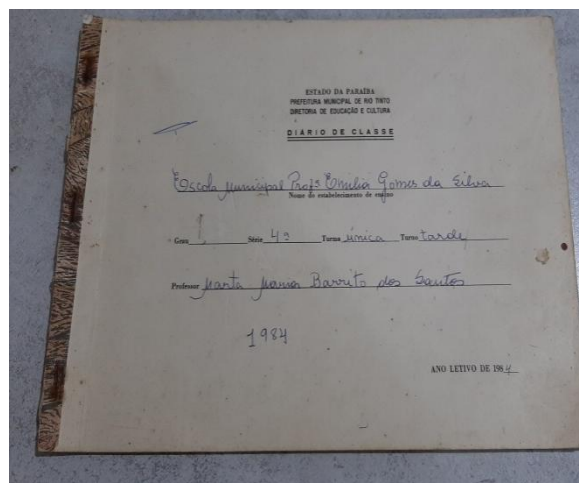 ESTADO DA PARAÍBA
PREFEITURA MUNICIPAL DE RIO TINTO
DIRETORIA DE EDUCAÇÃO E CULTURA
DIÁRIO DE CLASSE
Escola Municipal Profª Emilia Gomes da Silva
Nome do estabelecimento de ensino
Grau 1 Série 4ª Turma única Turno tarde
Professor Marta Maria Barrito dos Santos
1984
ANO LETIVO DE 1984